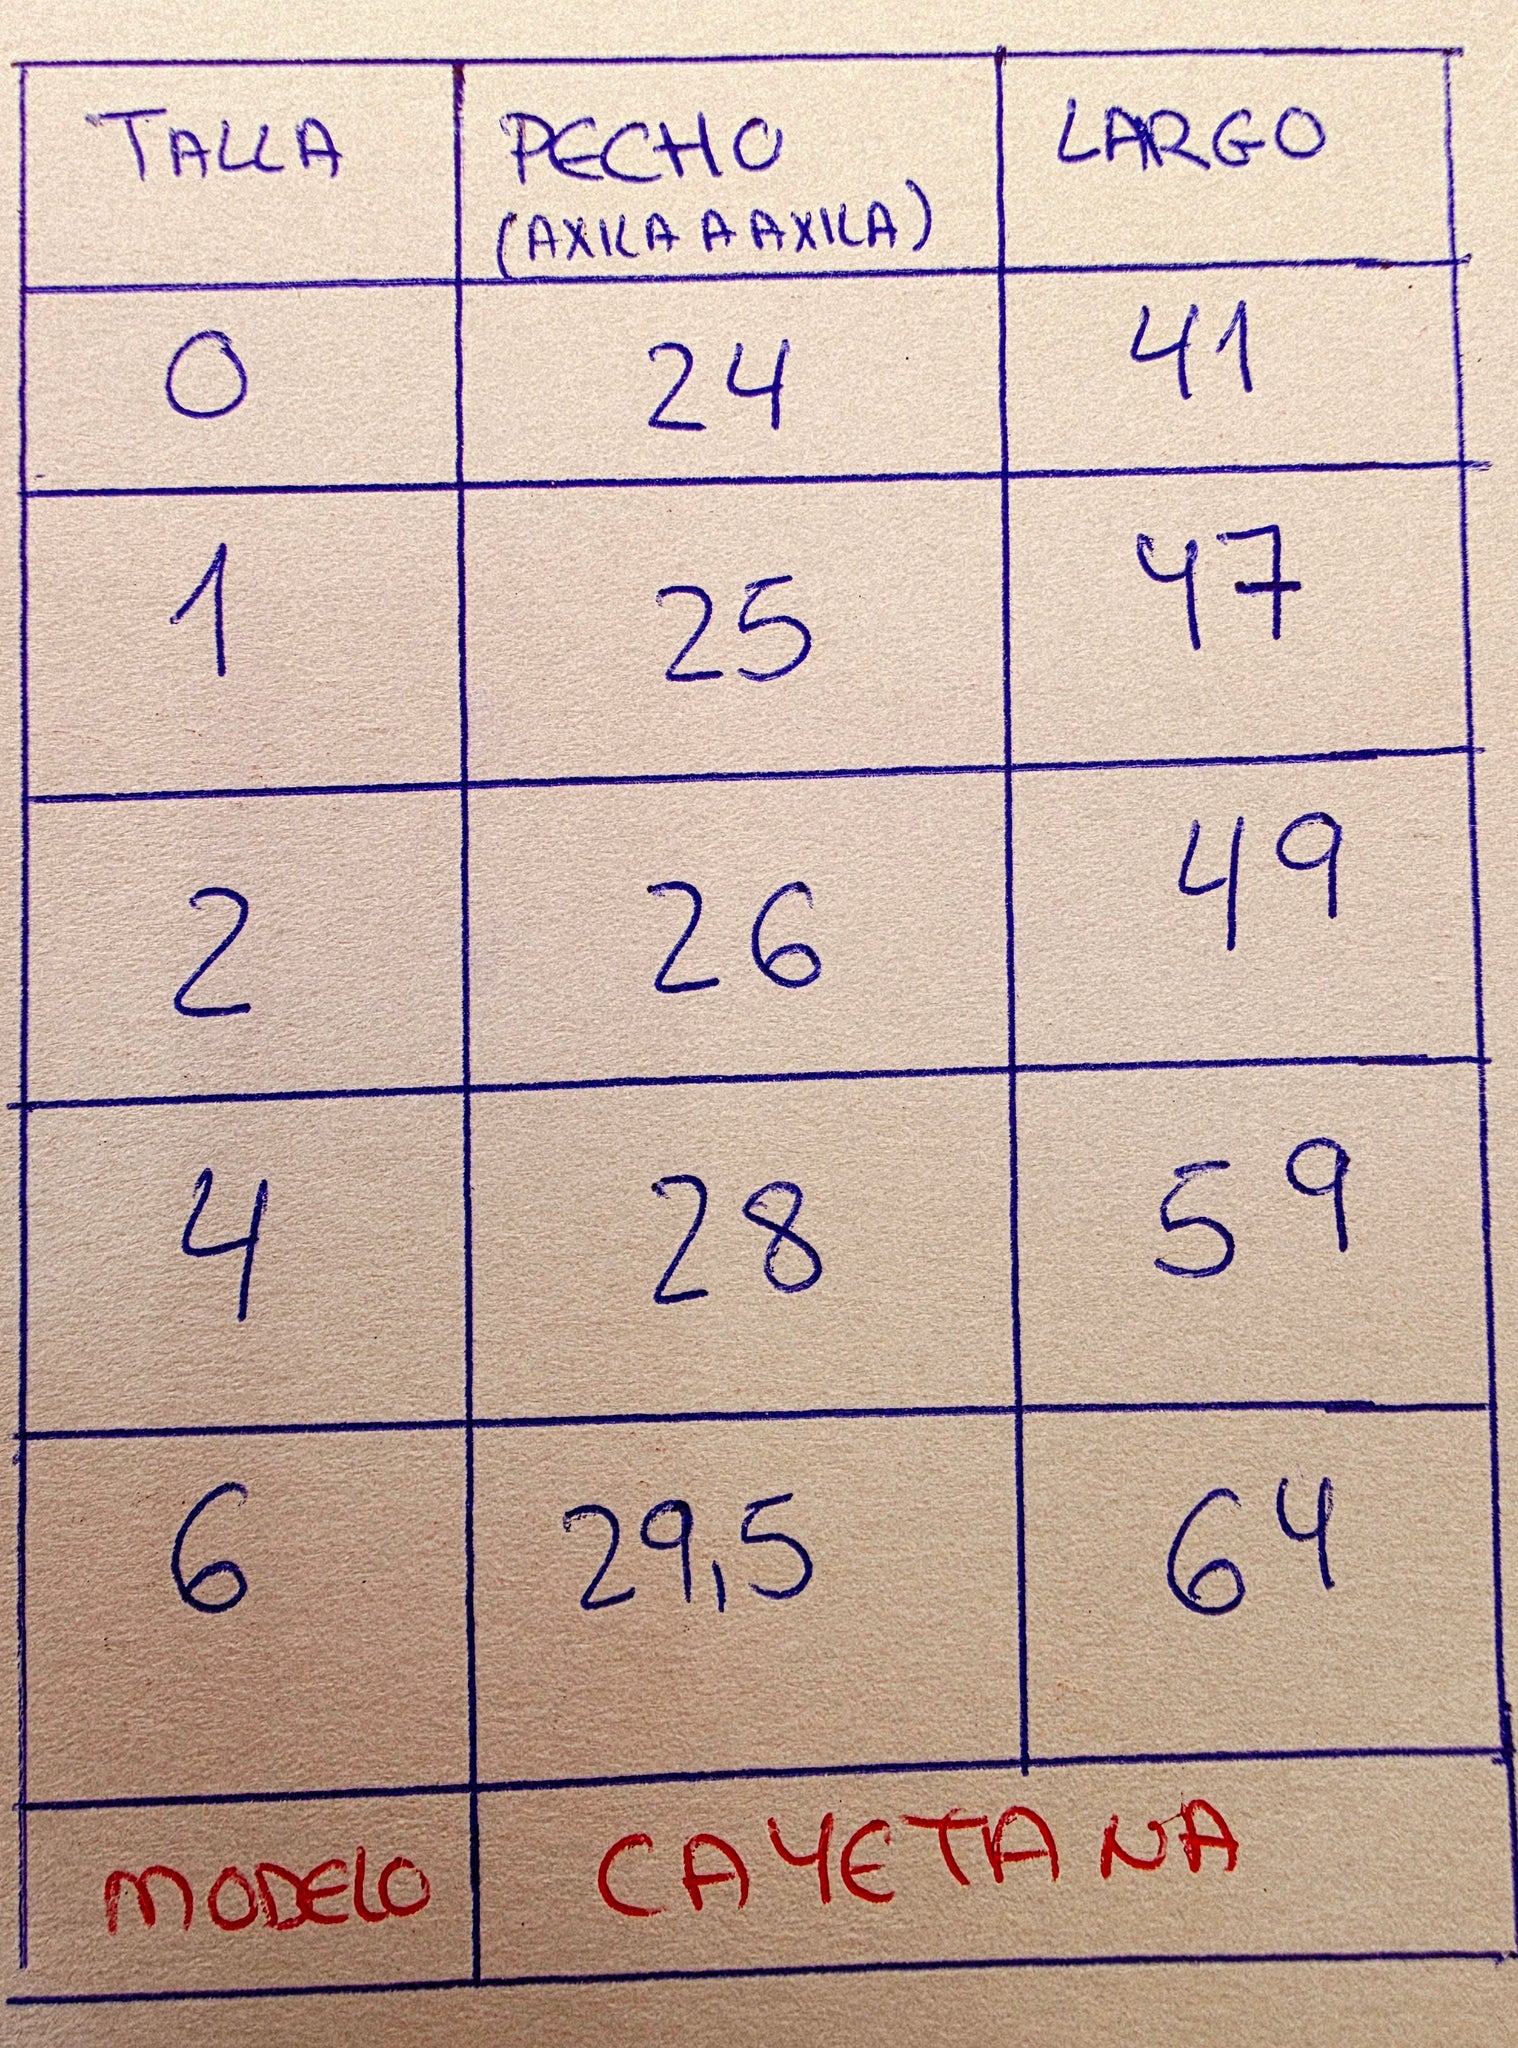 TALLA PECHO LARGO
(AXILA A AXILA)
0 24 41
1 25 47
2 26 49
4 28 59
6 29,5 64
MODELO CAYETANA